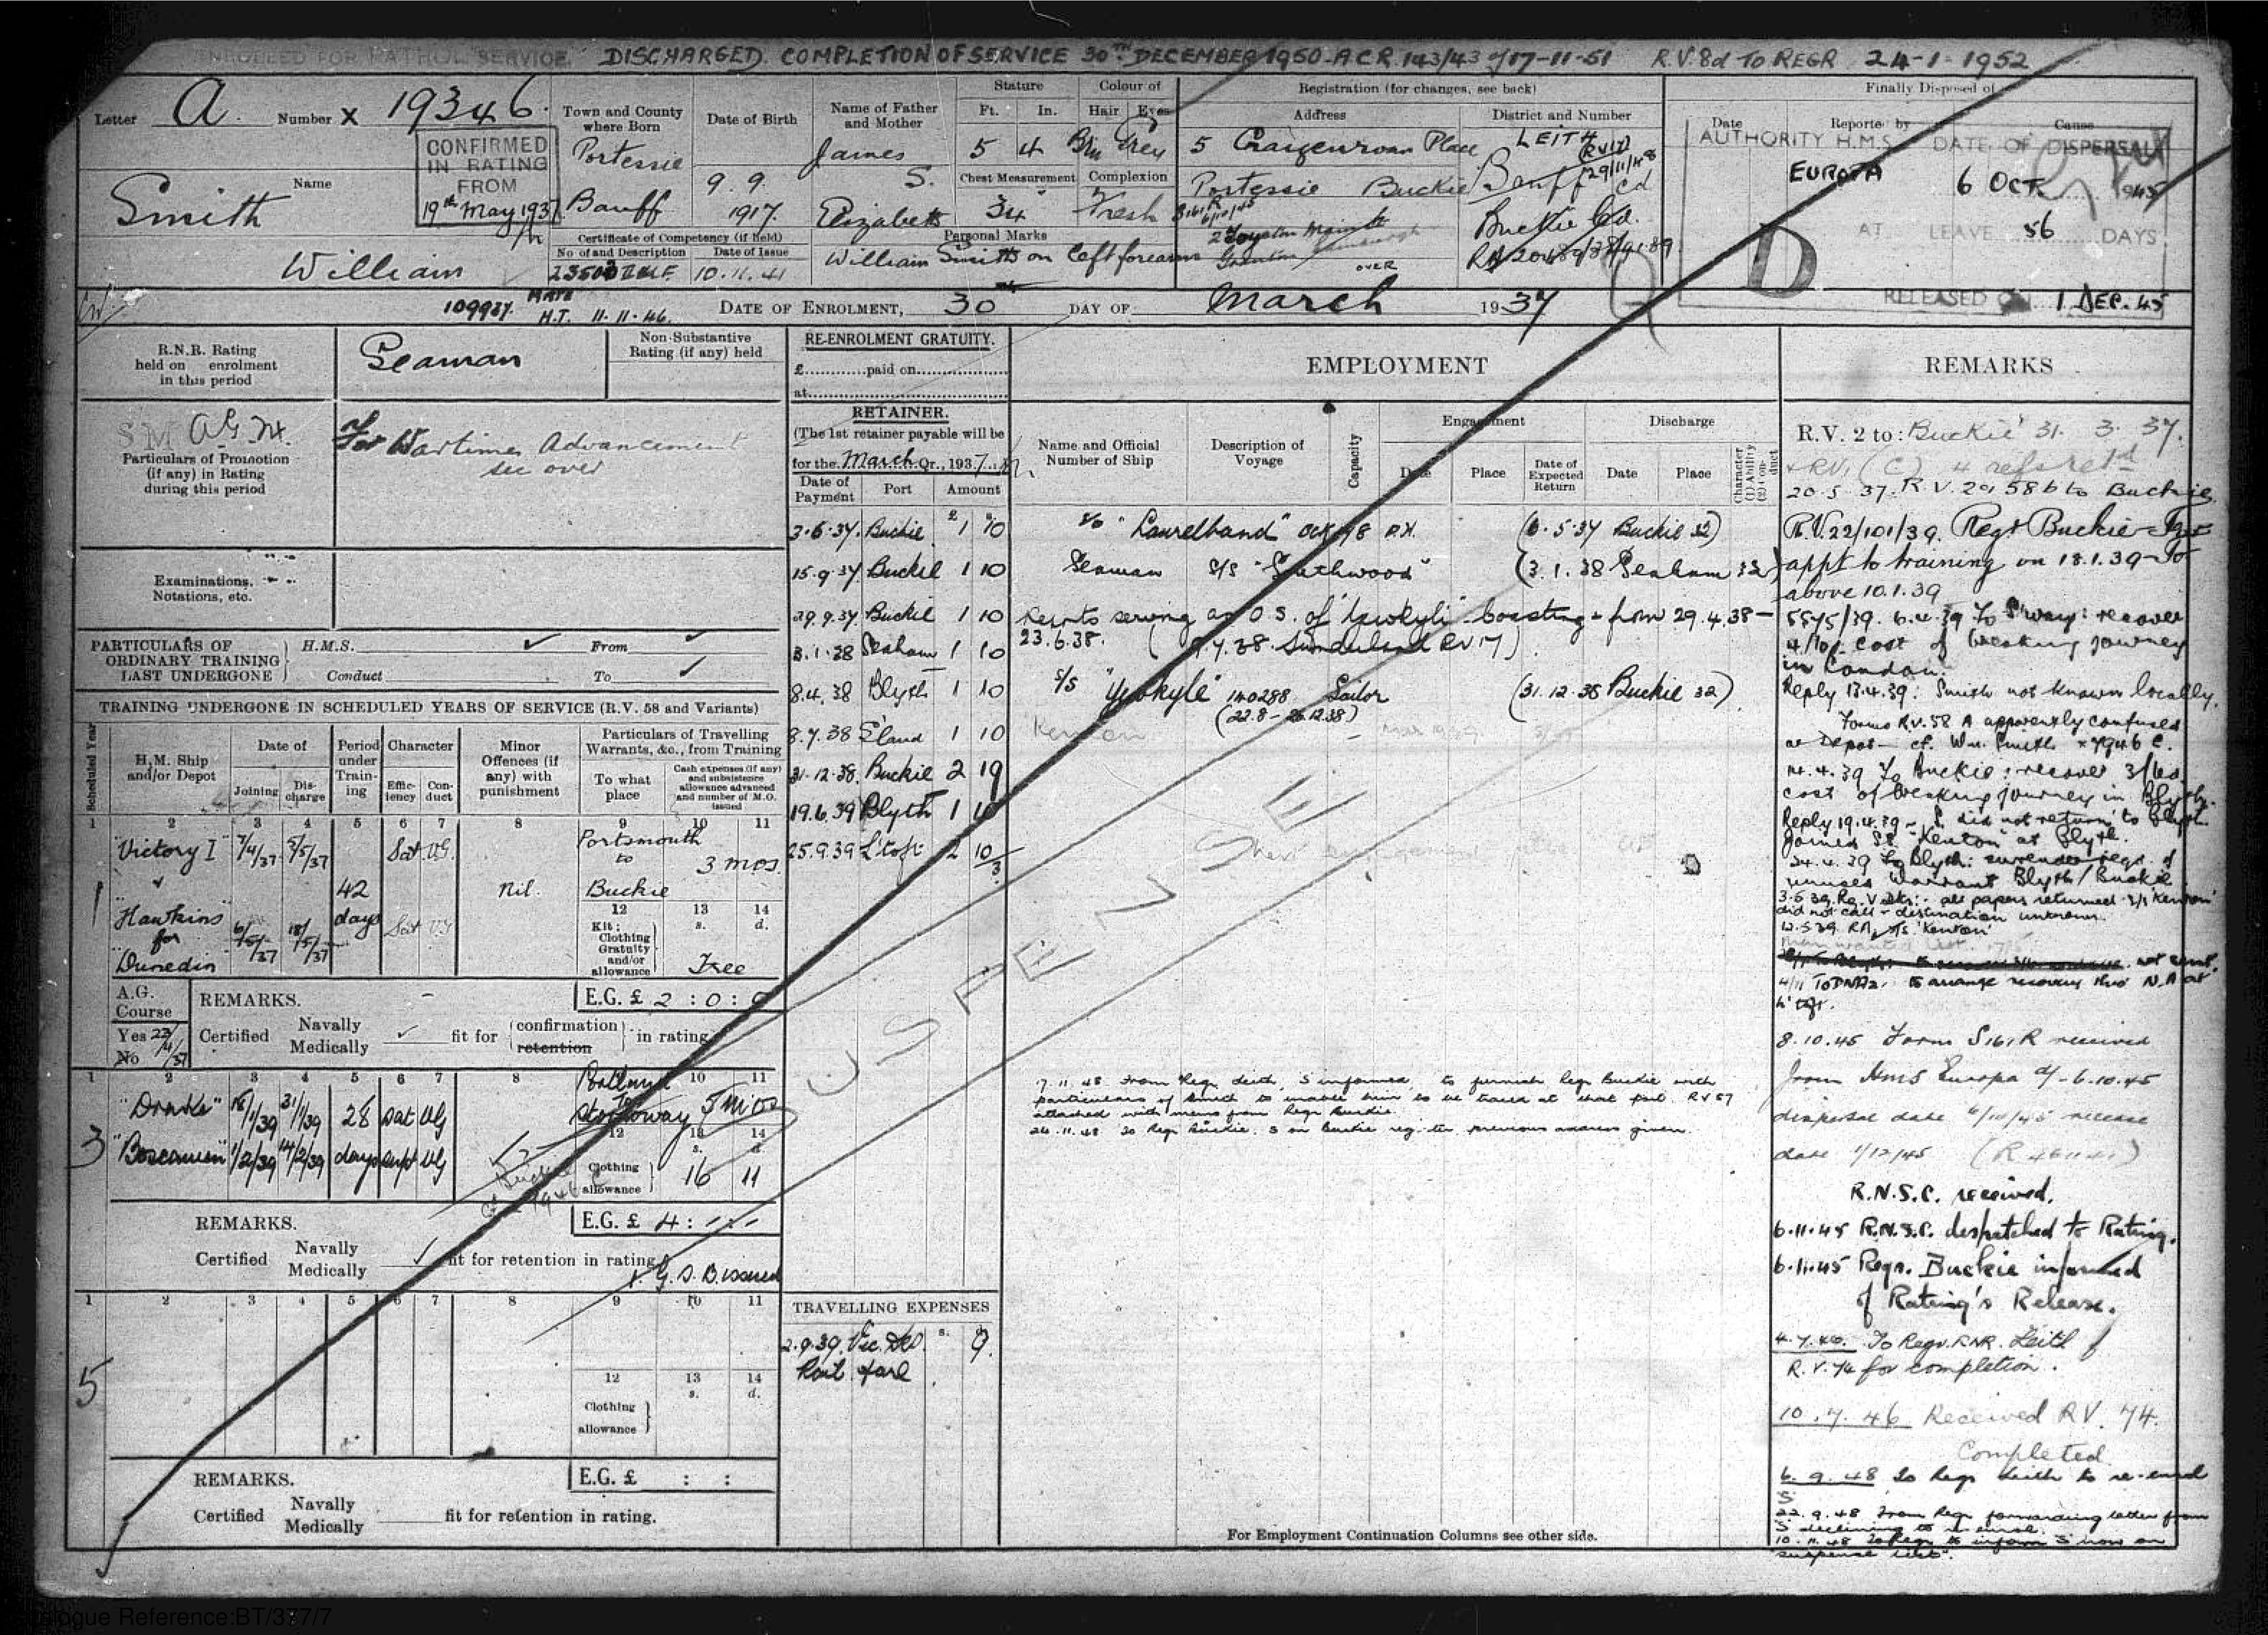 ENROLLED FOR PATROL SERVICE. DISCHARGED. COMPLETION OF SERVICE 30TH DECEMBER 1950 A.C.R. 143/43 of 17-11-51 R.V. 8d TO REGR 24-1-1952
Letter A. Number X 19346.
CONFIRMED IN RATING FROM 19th May 1937
Name
Smith
William
Town and County where Born
Portessie
Banff
Date of Birth
9. 9. 1917.
Name of Father and Mother
James S.
Elizabeth
Stature
Ft. In.
5 4
Colour of
Hair Eyes
Brn Grey
Chest Measurement
34"
Complexion
Fresh
Certificate of Competency (if held)
No of and Description Date of Issue
10.11.41
Personal Marks
William Smith on left forearm
Registration (for changes, see back)
Address
5 Craigenroan Place
Portessie Buckie
Granton
OVER
District and Number
LEITH
(RV17)
29/11/48
Banff Cd
Buckie Cd.
Finally Disposed of
Date Reported by Cause
AUTHORITY H.M.S. EUROPA
DATE OF DISPERSAL 6 OCT. 1945
AT LEAVE 56 DAYS
D
RELEASED ON 1 DEC. 45
109937. MATE H.T. 11-11-46.
DATE OF ENROLMENT, 30 DAY OF March 1937
R.N.R. Rating held on enrolment in this period
Seaman
Non-Substantive Rating (if any) held
S M A.G.
Particulars of Promotion (if any) in Rating during this period
For Wartime Advancement
see over
Examinations, Notations, etc.
PARTICULARS OF ORDINARY TRAINING LAST UNDERGONE
H.M.S. From
Conduct To
TRAINING UNDERGONE IN SCHEDULED YEARS OF SERVICE (R.V. 58 and Variants)
Scheduled Year
H.M. Ship and/or Depot
Date of
Joining Discharge
Period under Training
Character
Efficiency Conduct
Minor Offences (if any) with punishment
Particulars of Travelling Warrants, &c., from Training
To what place
Cash expenses (if any) and subsistence allowance advanced and number of M.O. issued
1 2 3 4 5 6 7 8 9 10 11
1
"Victory I" 7/4/37 5/5/37 Sat VG.
"Hawkins" for "Dunedin" 6/5/37 18/5/37 Sat VG
42 days
Nil.
Portsmouth to Buckie
3 mos.
12 13 14
s. d.
Kit; Clothing Gratuity and/or allowance
Free
A.G. Course
Yes 23/4/37
No
REMARKS.
E.G. £ 2 : 0 : 0
Certified Navally Medically fit for confirmation retention in rating
1 2 3 4 5 6 7 8 9 10 11
3
"Drake" 16/1/39 31/1/39 28 Sat VG
"Boscawen" 1/2/39 14/2/39 days VG
Portland to Stornoway
12 13 14
s. d.
Clothing allowance 16 11
REMARKS.
E.G. £ 4 : - : -
Certified Navally Medically fit for retention in rating
G.S.B. issued
1 2 3 4 5 6 7 8 9 10 11
5
12 13 14
s. d.
Clothing allowance
REMARKS.
E.G. £ : :
Certified Navally Medically fit for retention in rating.
RE-ENROLMENT GRATUITY.
£ paid on
at
RETAINER.
(The 1st retainer payable will be for the March Qr., 1937
Date of Payment Port Amount
3.6.37. Buckie £1 10
15.9.37 Buckie 1 10
29.9.37 Buckie 1 10
3.1.38 Seaham 1 10
8.4.38 Blyth 1 10
8.7.38 S'land 1 10
31.12.38. Buckie 2 19
19.6.39 Blyth 1 10
25.9.39 L'toft 2 10/3
TRAVELLING EXPENSES
2.9.39. Vic. Dep. 9.
Rail fare
EMPLOYMENT
Name and Official Number of Ship
Description of Voyage
Capacity
Engagement
Date Place Date of Expected Return
Discharge
Date Place
Character (1) Ability (2) Conduct
S/D "Laurelband" (6.5.37 Buckie 32)
Seaman S/S "Southwood" (3.1.38 Seaham 32)
Reports serving as O.S. of boasting from 29.4.38 - 23.6.38. (9.7.38. Sunderland RV17)
S/S 140288 Sailor (31.12.38 Buckie 32)
(22.8 - 26.12.38)
Kenton
SUSPENSE
17.11.48 From Regr. Leith, S informed, to furnish Regr Buckie with
particulars of Smith to enable him to be traced at that port. RV 57
attached with memo from Regr Buckie.
24.11.48 To Regr Buckie. S on Buckie reg. previous address given.
For Employment Continuation Columns see other side.
REMARKS
R.V. 2 to: Buckie 31. 3. 37.
+ RV1 (C) 4 refs retd
20.5.37. R.V. 2a 58b to Buckie.
R.V. 22/101/39. Regr Buckie
appt to training on 18.1.39
above 10.1.39
5545/39. 6.4.39 To S'way: recover
cost of breaking journey
in London.
Reply 13.4.39: Smith not known locally.
Forms RV.58 A apparently confused
at Depot - cf. Wm. Smith X 7946 C.
14.4.39 To Buckie: recover
cost of breaking journey in Blyth.
Reply 19.4.39 - S. did not return to Blyth.
Joined SS. "Kenton" at Blyth.
24.4.39 To Blyth: surrender
unused warrant Blyth/Buckie
3.5.39. all papers returned S/S "Kenton"
did not call - destination unknown.
12.5.39 S/S "Kenton"
not sent.
4/11 to arrange recovery thro' N.A at
L'toft.
8.10.45 Form S161R received
from HMS Europa d/- 6.10.45
dispersal date 6/10/45 release
date 1/12/45
R.N.S.C. received.
6.11.45 R.N.S.C. despatched to Rating.
6.11.45 Regr. Buckie informed
of Rating's Release.
4.7.46. To Regr. RNR. Leith
R.V.74 for completion.
10.7.46 Received RV. 74.
Completed.
6.9.48 To Regr Leith to re-enrol
S
22.9.48 From Regr forwarding letter from
S declining to re-enrol.
10.11.48 To Regr to inform S now on
suspense list.
Catalogue Reference:BT/377/7